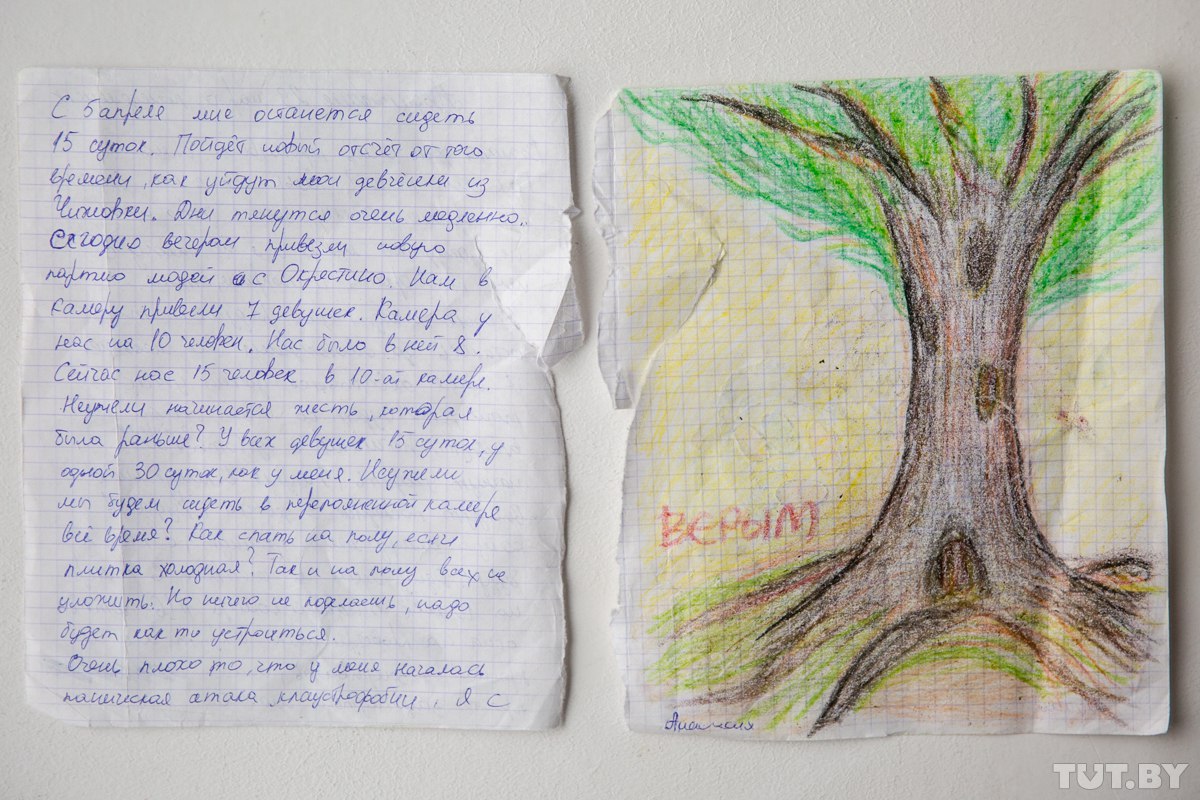 С 6 апреля мне останется сидеть
15 суток. Пойдёт новый отсчёт от того
времени, как уйдут мои девчёнки из
Чижовки. Дни тянутся очень медленно.
Сегодня вечером привезли новую
партию людей с Окрестино. Нам в
камеру привели 7 девушек. Камера у
нас на 10 человек. Нас было в ней 8.
Сейчас нас 15 человек в 10-ат камере.
Неужели начинается жесть, которая
была раньше? У всех девушек 15 суток, у
одной 30 суток, как у меня. Неужели
мы будем сидеть в переполненной камере
всё время? Как спать на полу, если
плитка холодная? Так и на полу всех не
уложить. Но ничего не поделаешь, надо
будет как то устроиться.
Очень плохо то, что у меня началась
паническая атака, клаустрофобии, я с
ВЕРЫМ
Анастасия
TUT.BY